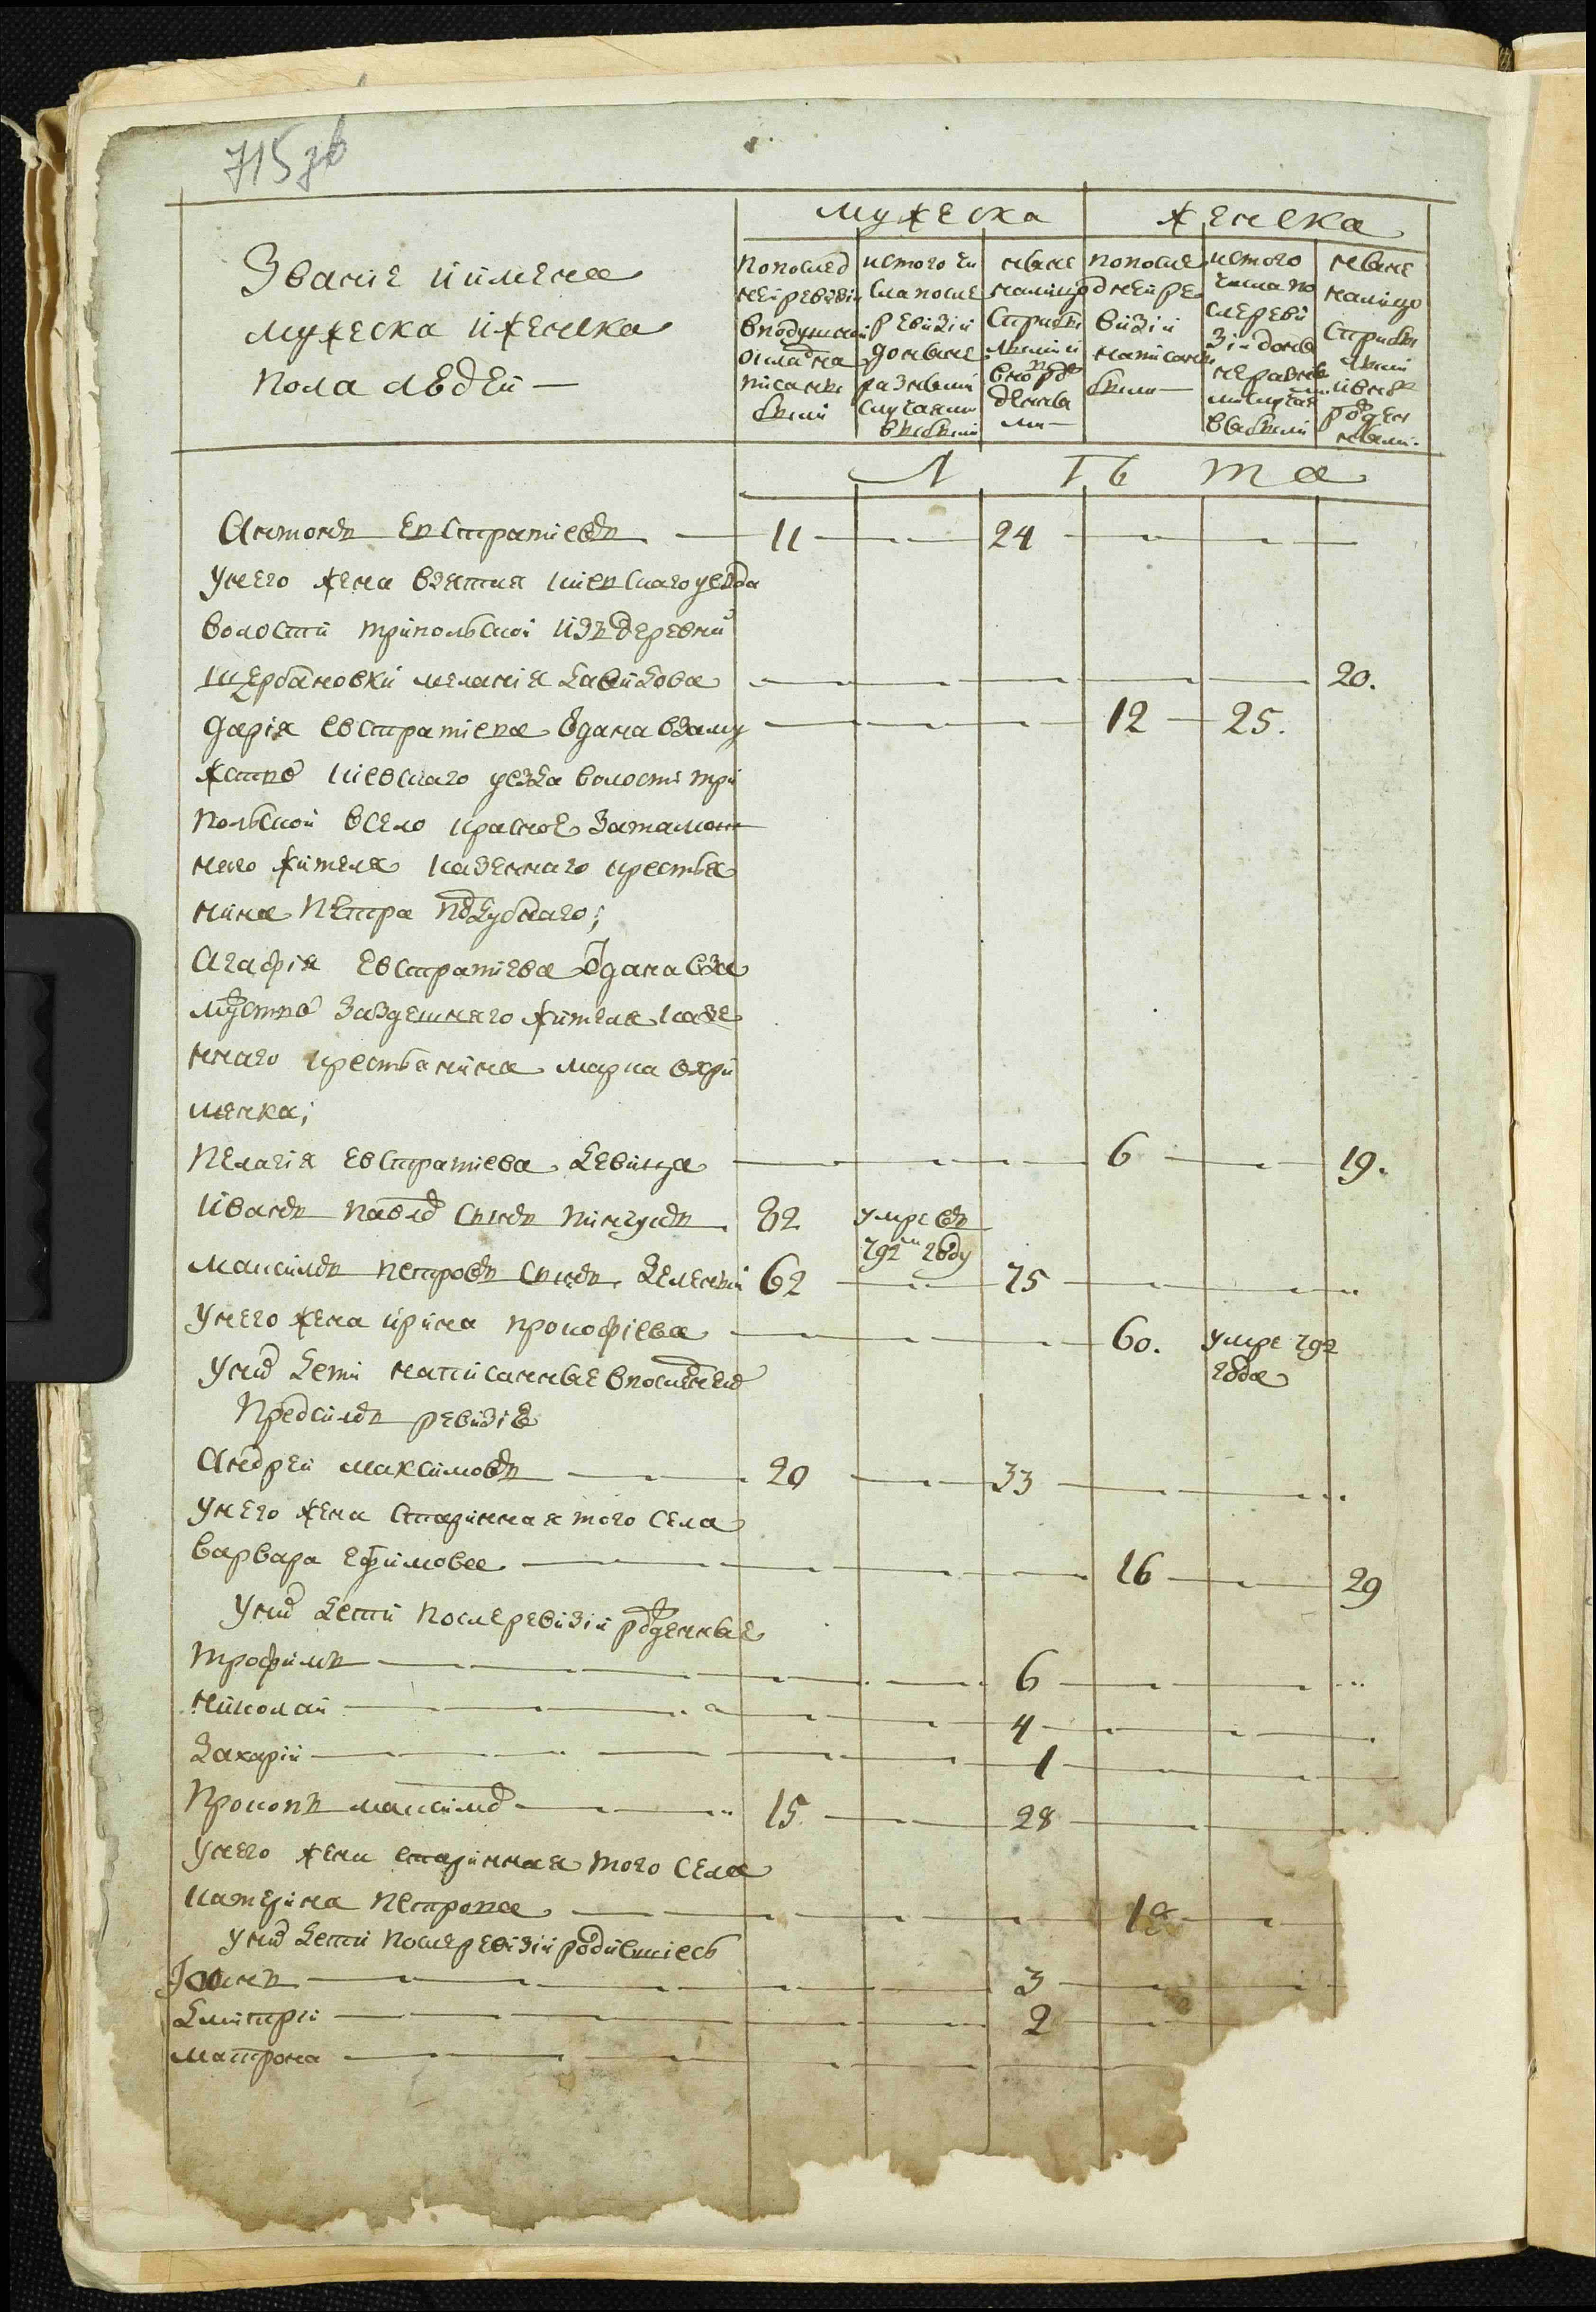 715 зв
мужеска женска
Званіе и имена
мужеска и женска
пола людей —
попослед
ней ревизіи
вподушной
окладъ на
писаны
были
истого чи
сла после
ревизіи
доныне
разными
случаями
выбыли
ныне
налицо
сприбы
лыми и
вновь рож
денны
ми —
попосле
дней ре
визіи
написаны
были —
истого
числа по
слереви
зіи доны
не разны
ми случая
выбыли
ныне
налицо
сприбы
лыми
ивновь
рожден
ными.
Л Ѣ т а
Антонъ Евстратіевъ — 11 — 24 —
Унего жена взятая кіевскаго уезда
волости трипольской изъ деревни
щербановки меланія Давидова — 20.
Дарія Евстратіева одана взаму
жство кіевскаго уезда волости три
польской всело красное затамош
няго жителя казеннаго крестья
нина Петра Поддубнаго;
Агафія Евстратіева одана вза
мужство заздешняго жителя казе
ннаго крестьянина марка
менка;
Пелагія Евстратіева девица — 6 — 19.
12 — 25.
Иванъ павловъ сынъ 82 умре въ
792м году
Максимъ петровъ сынъ Зеленкій 62 — 75 —
Унего жена ирина прокофіева — 60. умре 792
года
Унихъ дети написанные впоследней
Предсимъ ревизіе
Андрей максимовъ — 20 — 33 —
Унего жена старинная того села
варвара ефимова — 16 — 29
Унихъ дети после ревизіи рожденные
трофимъ — 6 —
николай — 4 —
Захарій — 1 —
Прокопъ максимовъ — 15. — 28 —
Унего жена старинная того села
катерина петрова — 18 —
Унихъ дети после ревизіи родившіесь
Іоанъ — 3 —
Дмитрій — 2 —
матрона —